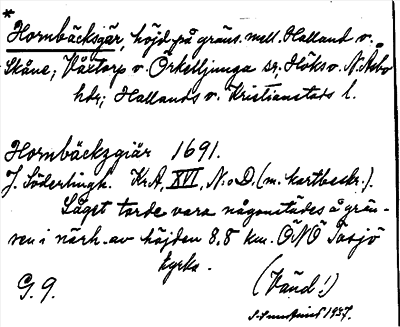 *
Hornbäcksgär, höjd på gräns. mell. Halland o.
Skåne; Våxtorp o. Örkelljunga sr; Höks o. N. Åsbo
hdr; Hallands o. Kristianstads l.
Hornbäckzgiär 1691.
J. Söderlingk. Kr.A, XVI, N:o D. (m. kartbeskr.).
Läget torde vara någonstädes å grän-
sen i närh. av höjden 8.8 km. ÖNÖ Tåsjö
kyrka.
G. 9. (Vänd!)
1937.